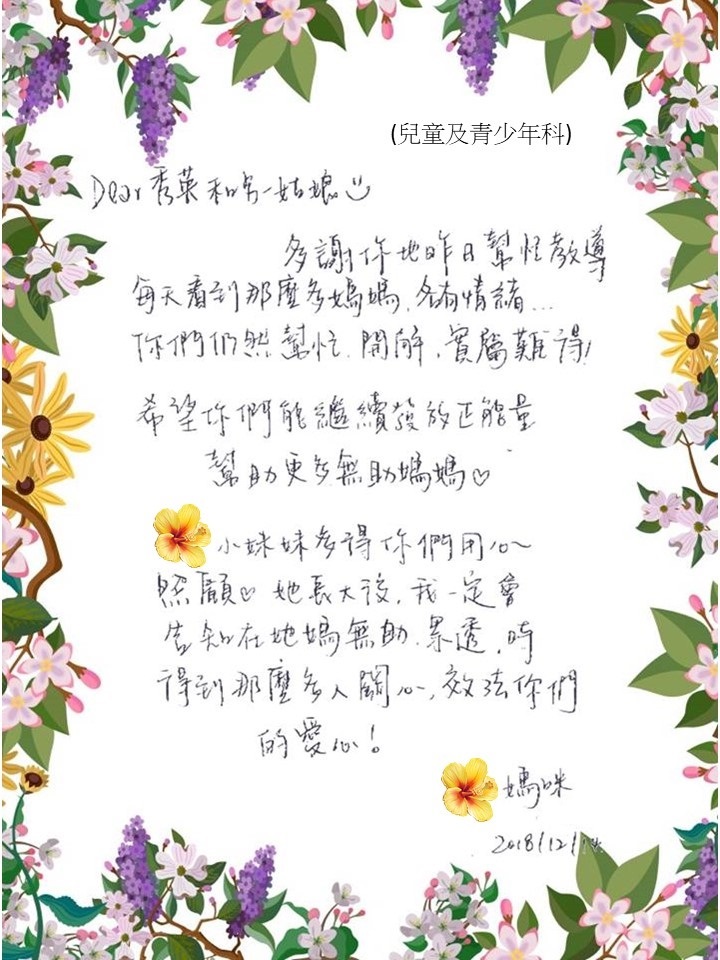 (兒童及青少年科)
Dear 秀英和另一姑娘
多謝你地昨日幫忙教導
每天看到那麼多媽媽,各有情緒...
你們仍然幫忙、開解,實屬難得!
希望你們能繼續發放正能量
幫助更多無助媽媽♡
小妹妹多得你們用心
照顧♡她長大後,我一定會
告知在她媽無助、累透,時
得到那麼多人關心,效法你們
的愛心!
媽咪
2018/12/